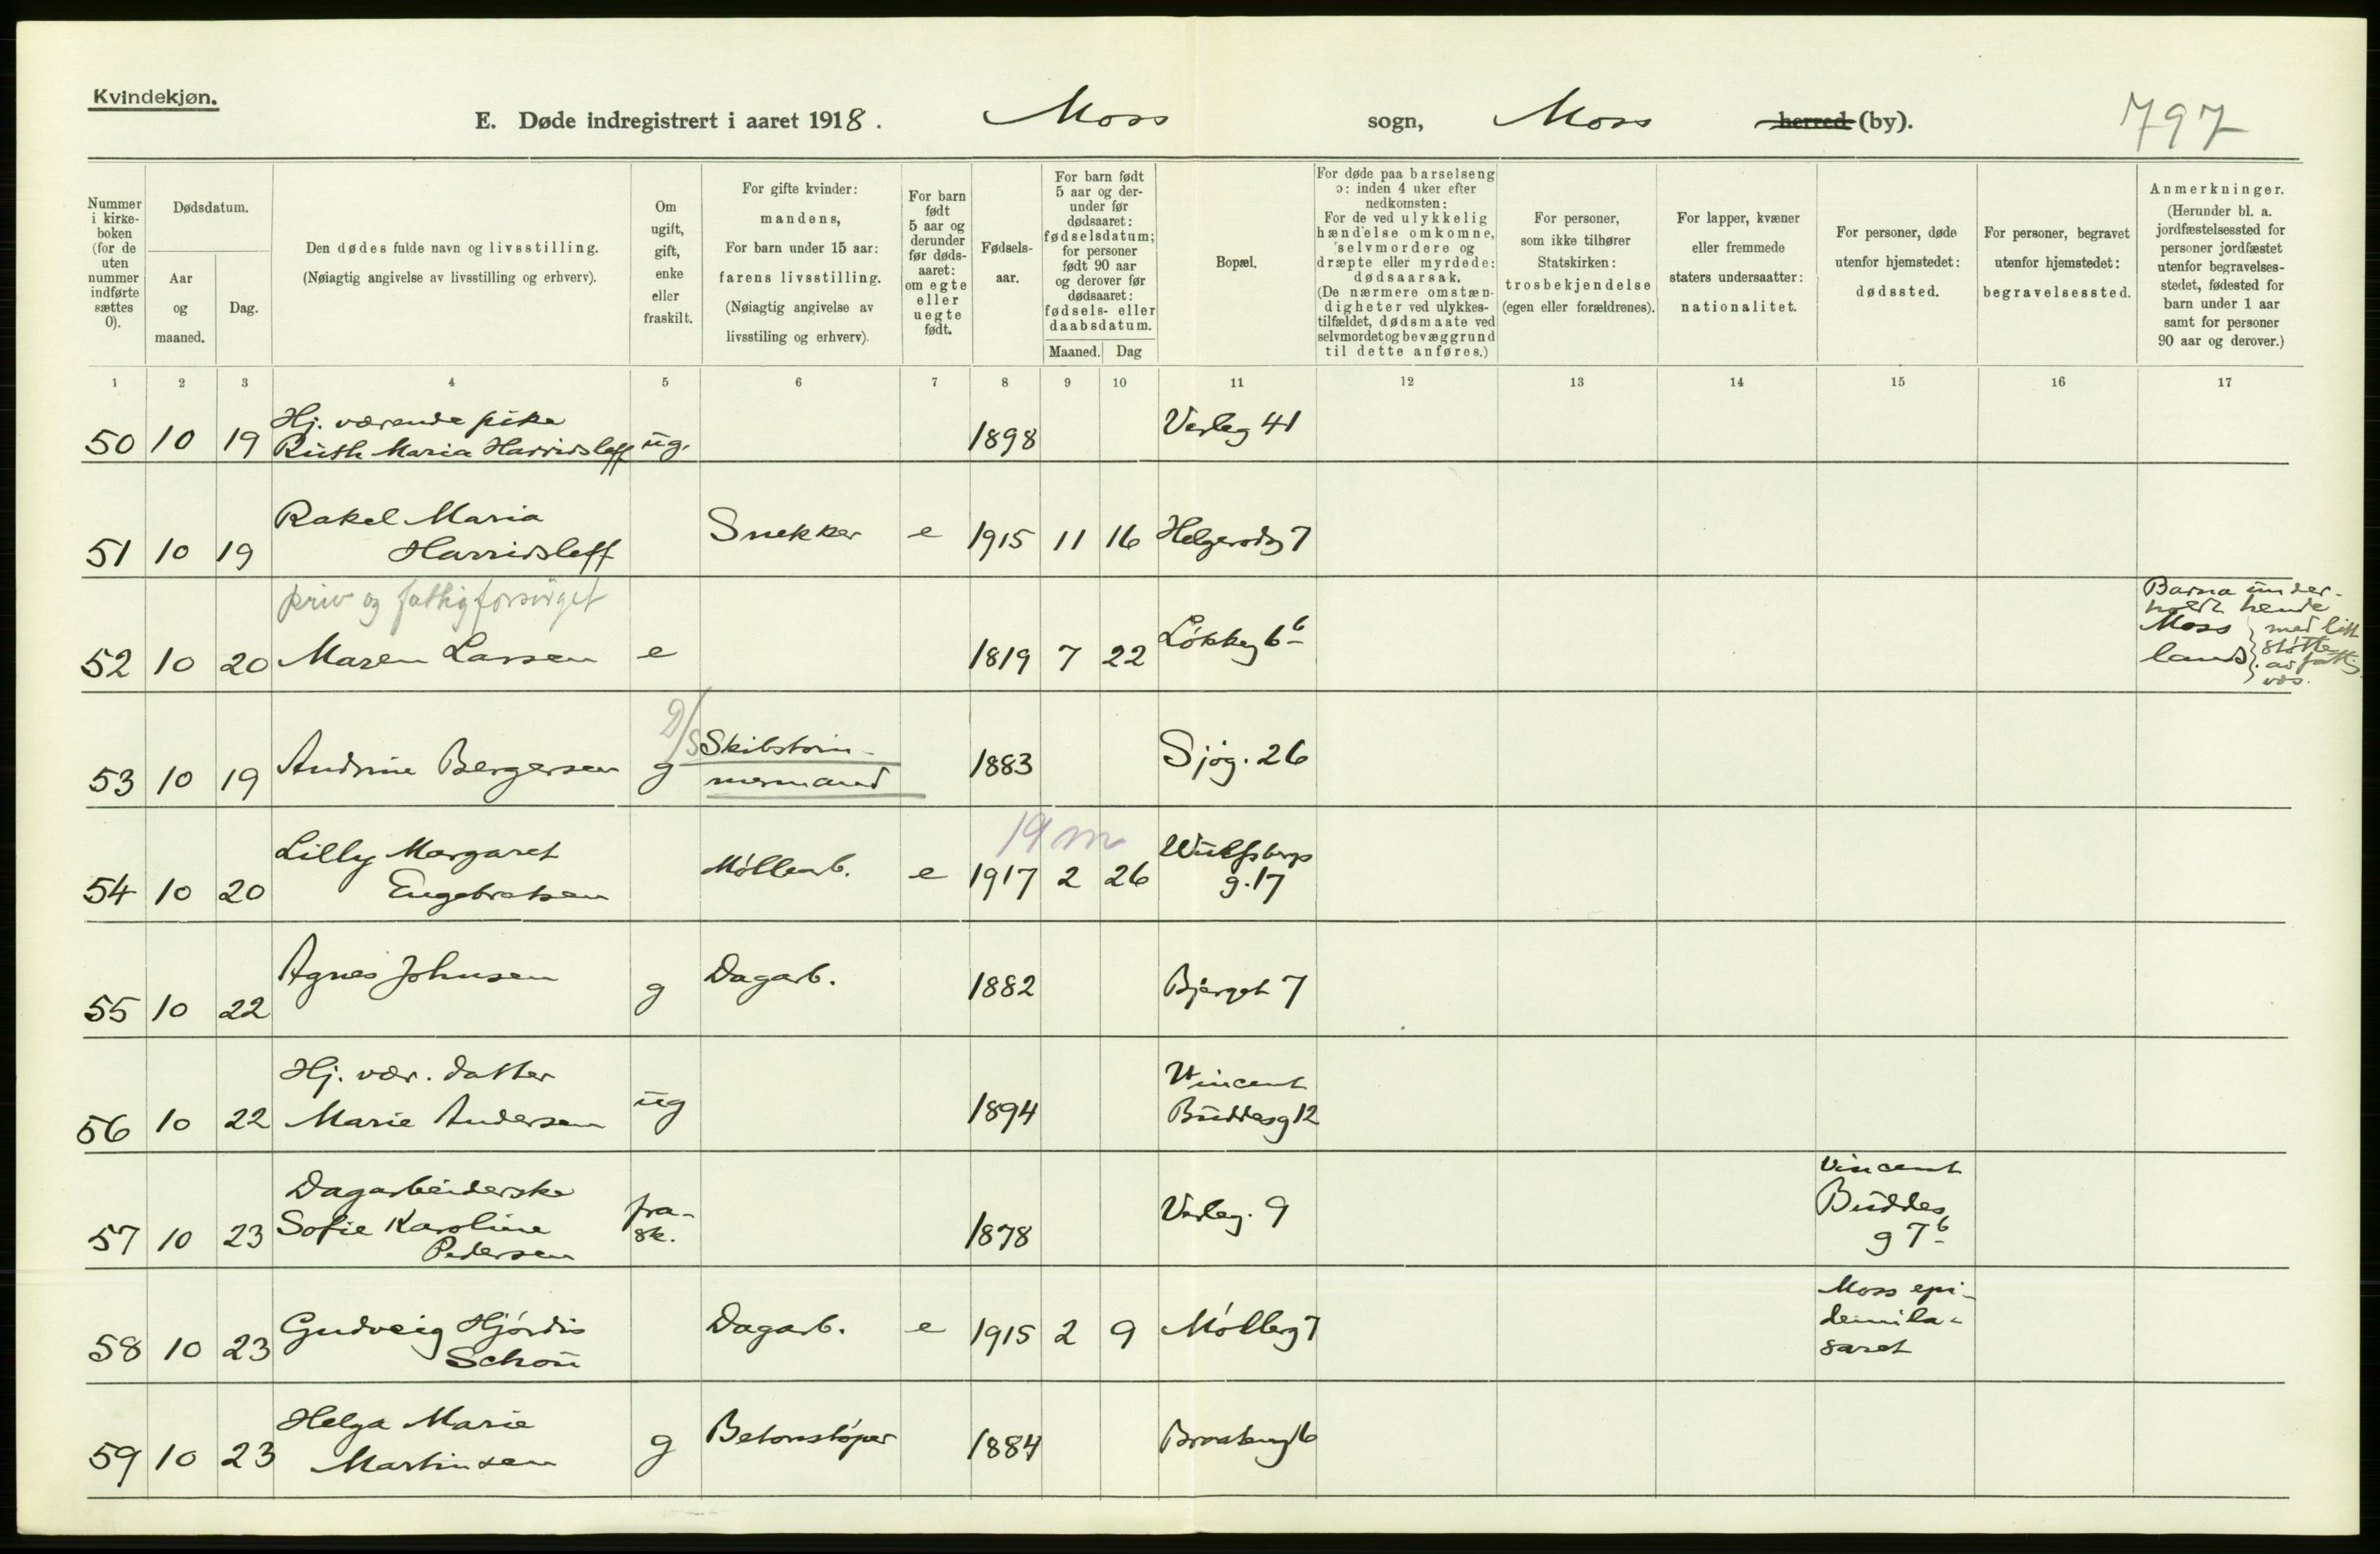 Kvindekjøn.
E. Døde indregistrert i aaret 1918. Moss sogn, Moss herred (by). 797
Nummer i kirke- boken (for de uten nummer indførte sættes 0).
Dødsdatum.
Aar og maaned.
Dag.
Den dødes fulde navn og livsstilling.
(Nøiagtig angivelse av livsstilling og erhverv).
Om ugift, gift, enke eller fraskilt.
For gifte kvinder: mandens,
For barn under 15 aar: farens livsstilling.
(Nøiagtig angivelse av livsstiling og erhverv).
For barn født 5 aar og derunder før døds- aaret: om egte eller uegte født.
Fødsels- aar.
For barn født 5 aar og der- under før dødsaaret: fødselsdatum; for personer født 90 aar og derover før dødsaaret: fødsels- eller daabsdatum.
Maaned. Dag
Bopæl.
For døde paa barselseng ɔ: inden 4 uker efter nedkomsten:
For de ved ulykkelig hændelse omkomne, selvmordere og dræpte eller myrdede: dødsaarsak.
(De nærmere omstæn- digheter ved ulykkes- tilfældet, dødsmaate ved selvmordet og bevæggrund til dette anføres.)
For personer, som ikke tilhører Statskirken: trosbekjendelse (egen eller forældrenes).
For lapper, kvæner eller fremmede staters undersaatter: nationalitet.
For personer, døde utenfor hjemstedet: dødssted.
For personer, begravet utenfor hjemstedet: begravelsessted.
Anmerkninger.
(Herunder bl. a. jordfæstelsessted for personer jordfæstet utenfor begravelses- stedet, fødested for barn under 1 aar samt for personer 90 aar og derover.)
1 2 3 4 5 6 7 8 9 10 11 12 13 14 15 16 17
Hj. værende pike
50 10 19 Ruth Maria Harridsleff ug. 1898 Varleg 41
Rakel Maria
51 10 19 Harridsleff Snekker e 1915 11 16 Helgerødg 7
priv og fattigforsørget
52 10 20 Maren Larsen e 1819 7 22 Løkkeg 6b
Barna under-
holdt hende
Moss med litt
land. støtte
av fattig
væs.
D/S Skibstøm-
53 10 19 Andrine Bergersen g mermand 1883 Sjøg. 26
19 m
Lilly Margaret
54 10 20 Engebretsen Møllearb. e 1917 2 26 Wulfsbergs
g. 17
55 10 22 Agnes Johnsen g Dagarb. 1882 Bjerget 7
Hj. vær. datter
56 10 22 Marie Andersen ug 1894 Vincent
Buddesg 12
Dagarbeiderske
57 10 23 Sofie Karoline
Pedersen fra-
sk. 1878 Varleg. 9 Vincent
Buddes
g 7b
58 10 23 Gudveig Hjørdis
Schou Dagarb. e 1915 2 9 Mølleg 7 Moss epi-
demila-
saret
Helga Marie
59 10 23 Martinsen g Betonstøper 1884